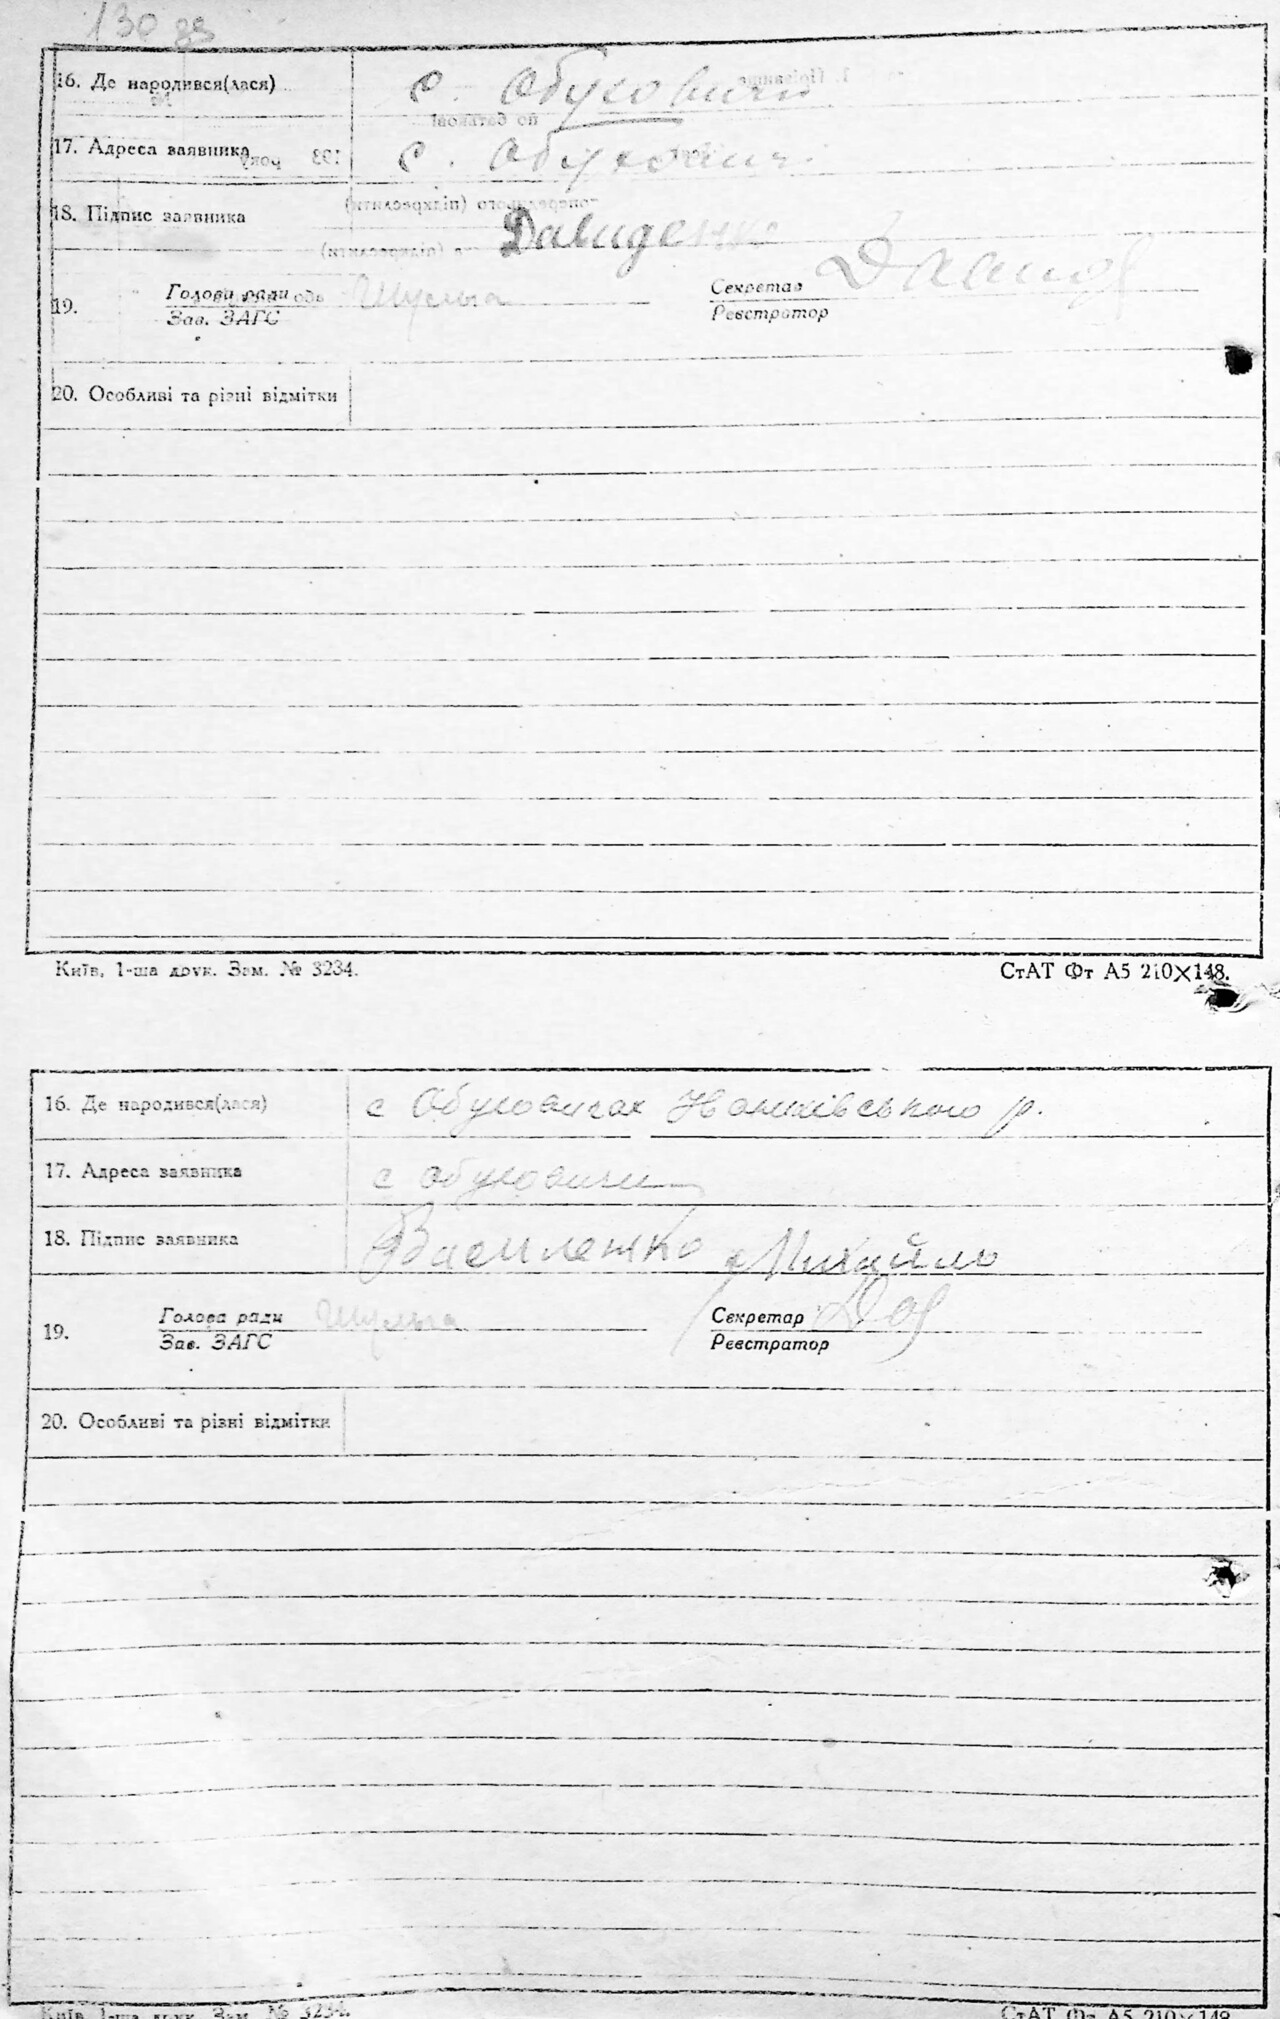 130 зв
16. Де народився(лася) с. Обуховичи
17. Адреса заявника с. Обуховичі
18. Підпис заявника Давиденко
Голова ради Шульга Секретар
19.
Зав. ЗАГС Реєстратор
20. Особливі та різні відмітки
Київ, 1-ша друк. Зам. № 3234. СтАТ Фт А5 210×148.
16. Де народився(лася) с Обуховичах Іванківського р.
17. Адреса заявника с Обуховичи
18. Підпис заявника Василенко Михайло
Голова ради Шульга Секретар
19.
Зав. ЗАГС Реєстратор
20. Особливі та різні відмітки
Київ, 1-ша друк. Зам. № 3234. СтАТ Фт А5 210×148